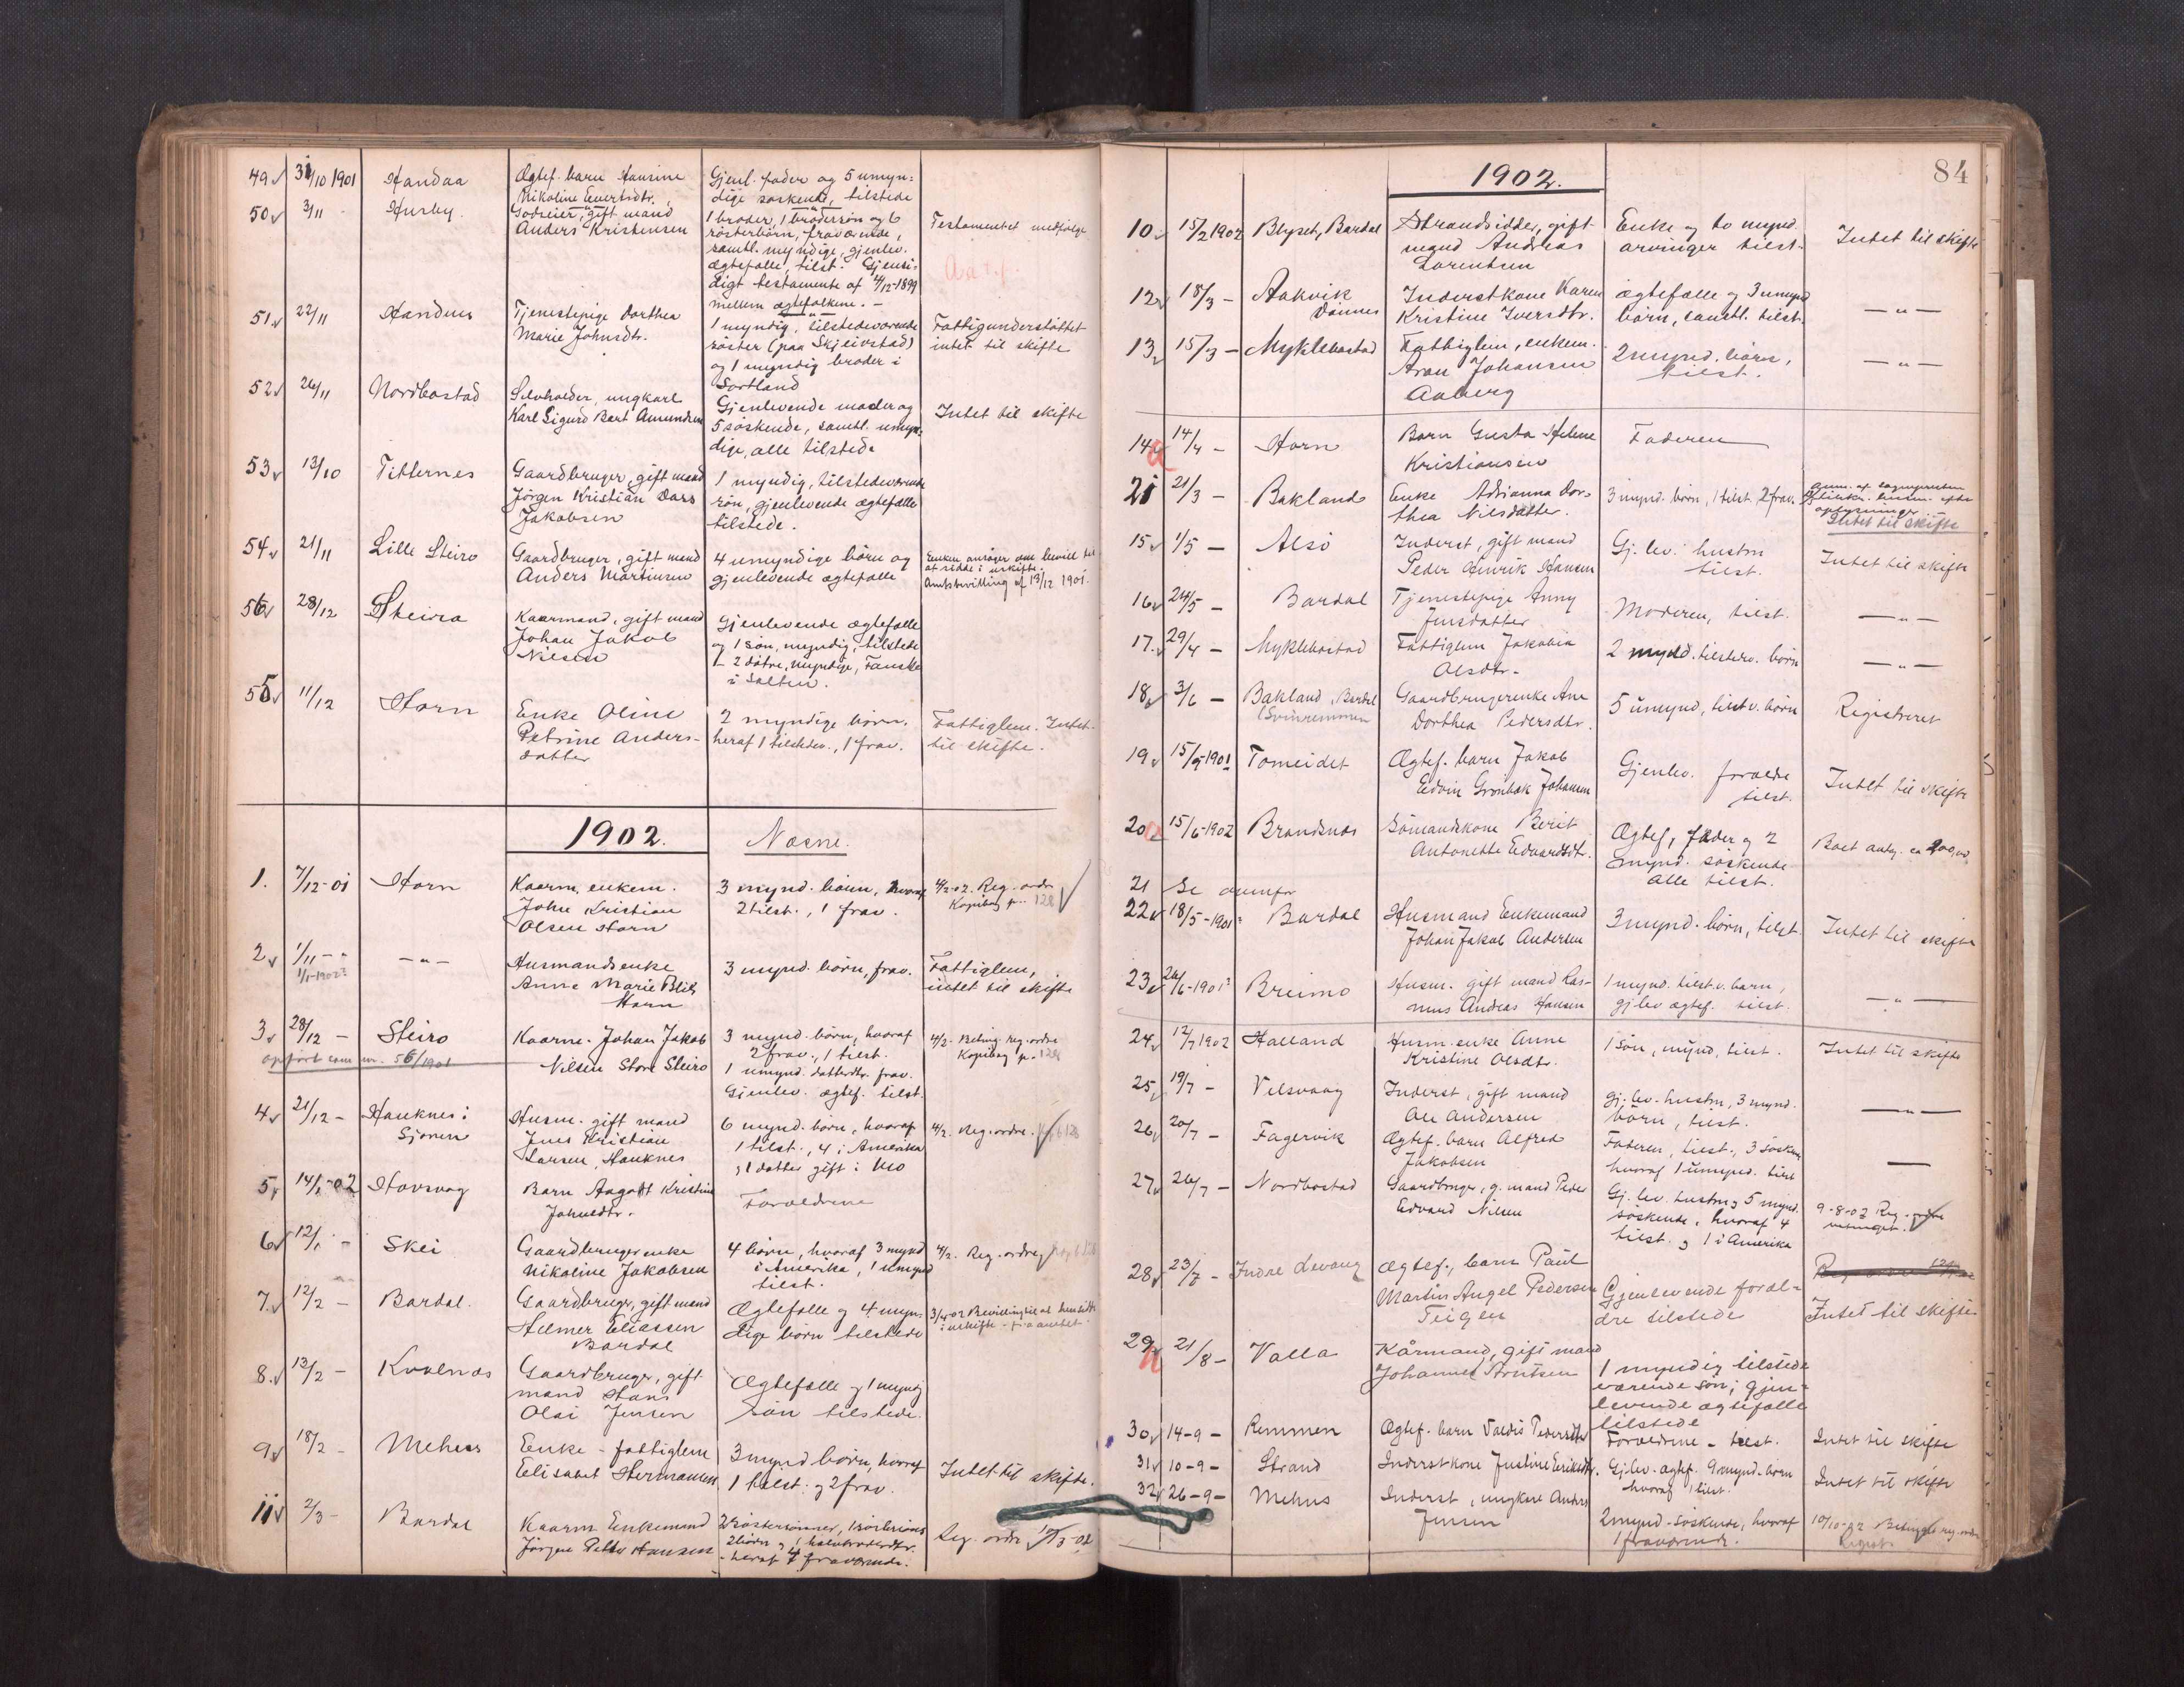 49 31/10 1901 Handaa Ægtef. barn Hansine Gjenl. fader og 5 umyn=
Nikoline Evertsdtr. dige søskende, tilstede
50 3/11 - Husby. Godseier, gift mand 1 broder, 1 brodersøn og 6 Testamentet medfølge
Anders Kristensen søsterbörn, fraværende,
samtl. myndige, gjenlev.
ægtefælle, tilst. Gjensi=
digt testamente af 4/12-1899
mellem ægtefolkene. -
51 22/11 Handnes Tjenestepige Dorthea 1 myndig, tilstedeværende Fattigunderstøttet
Marie Johnsdtr. søster (paa Skjeivstad) intet til skifte
og 1 myndig broder i
Sortland
52 26/11 Nordbostad Selvhœder, ungkarl Gjenlevende moder og Intet til skifte
Karl Sigurd Bert Amundsen 5 söskende, samtl. umyn=
dige, alle tilstede
53 13/10 Titternes Gaardbruger, gift mand 1 myndig, tilstedeværende
Jörgen Kristian Dass sön, gjenlevende ægtefælle
Jakobsen tilstede.
54 21/11 Lille Steiro Gaardbruger, gift mand 4 umyndige börn og Enken ansöger om bevill. til
Anders Martinsen gjenlevende ægtefælle at sidde i uskifte.
Amtsbevilling af 13/12 1901.
56 28/12 Steira Kaarmand, gift mand Gjenlevende ægtefælle
Johan Jakob og 1 sön, myndig, tilstede
Nilsen + 2 dötre, myndige, Fauske
i Salten.
55 11/12 Horn Enke Oline 2 myndige börn, Fattiglem. Intet
Petrine Anders- heraf 1 tilstedev., 1 frav. til skifte.
datter
1902. Næsne.
1. 7/12-01 Horn Kaarm. enkem. 3 mynd. börn, hvoraf 4/2-02. Reg. ordre
John Kristian 2 tilst., 1 frav. Kopibog p. 128
Olsen Horn
2 1/11 - - -„- Husmandsenke 3 mynd. börn, frav. Fattiglem,
1/1-1902? Anne Marie Blix intet til skifte
Horn
3 28/12 - Steiro Kaarm. Johan Jakob 3 mynd. börn, hvoraf 4/2. Beting. reg. ordre
opfört som nr. 56/1901 Nilsen Store Steiro 2 frav., 1 tilst. Kopibog p. 128
1 umynd. datterdtr. frav.
Gjenlev. ægtef. tilst.
4 21/12 - Hauknes i Husm. gift mand 6 mynd. börn, hvoraf 4/2. Reg. ordre. 128
Sjonen Jens Kristian 1 tilst., 4 i Amerika
Larsen, Hauknes og 1 datter gift i Mo
5 14/1-02 Hovsvag Barn Aagodt Kristine Forældrene
Johnsdtr.
6 12/1 - Skei Gaardbrugerenke 4 börn, hvoraf 3 mynd 4/2. Reg. ordre 128
Nikoline Jakobsen i Amerika, 1 umynd
tilst.
7. 12/2 - Bardal. Gaardbruger, gift mand Ægtefælle og 4 myn- 3/4-02 Bevilling til at hensidde
Helmer Eliassen dige börn tilstede i uskifte fra amtet.
Bardal
8. 13/2 - Kvalnæs Gaardbruger, gift Ægtefælle og 1 myndig
mand Hans sön tilstede.
Olai Jensen
9 18/2 - Mehus Enke - fattiglem 3 mynd börn, hvoraf Intet til skifte.
Elisabet Hermansen. 1 tilst. og 2 frav.
11 2/3 - Bardal Kaarm Enkemand 2 söstersönner, Reg. ordre 17/3-02
Jörgen Peter Hansen heraf 4 fraværende.
84
1902.
10 15/2 1902 Blyset, Bardal Strandsidder, gift Enke og to mynd. Intet til skifte
mand Andreas arvinger tilst.
Lorentsen
12 18/3 - Aakvik Inderstkone Karen ægtefælle og 3 umynd -„-
Dönnes Kristine Iversdtr. börn, samtl. tilst.
13 15/3 - Myklebostad Fattiglem, enkem. 2 mynd. börn, -„-
Aron Johansen tilst.
Aaberg
14 14/4 - Horn Barn Gusta Helene Faderen
Kristiansen
21 21/3 - Bakland Enke Adrianna Dor= 3 mynd. börn, 1 tilst. 2 frav.
thea Nilsdatter. oplysninger. -
Intet til skifte
15 1/5 - Alsö Inderst, gift mand Gj. lev. hustru Intet til skifte
Peder Henrik Hansen tilst.
16 24/5 - Bardal Tjenestepige Anny Moderen, tilst. -„-
Jensdatter
17. 29/4 - Myklebostad Fattiglem Jakobia 2 mynd. tilstedev. börn -„-
Olsdtr.
18 3/6 - Bakland, Bardal Gaardbrugerenke Ane 5 umynd, tilst.v. börn Registreret
(Svinremmen Dorthea Pedersdtr.
19 15/9-1901 Tomeidet Ægtef. barn Jakob Gjenlev. forældre Intet til skifte
Edvin Grönbæk Johansen tilst.
20 15/6-1902 Brandsnæs Sömandskone Berit Ægtef, fader og 2 Boet antg. ca 200,00
Antonette Edvardsdtr. mynd. söskende
alle tilst.
21 Se ovenfor
22 18/5-1901? Bardal Husmand Enkemand 3 mynd. börn, tilst. Intet til skifte
Johan Jakob Andersen
23 26/6-1901? Breimo Husm. gift mand Ras- 1 mynd. tilst.v. barn, -„-
mus Andreas Hansen gj.lev ægtef. tilst.
24 12/7 1902 Halland Husm. enke Anne 1 sön, mynd, tilst. Intet til skifte
Kristine Olsdtr.
25 19/7 - Velsvaag Inderst, gift mand gj. lev. hustru, 3 mynd. -„-
Ole Andersen börn, tilst.
26 20/7 - Fagervik Ægtef. barn Alfred Faderen, tilst., 3 söskende -
Jakobsen hvoraf 1 umynd. tilst
27 26/7 - Nordbostad Gaardbruger, g. mand Peder Gj. lev. hustru og 5 mynd. 9-8-02 Reg. ordre
Edvard Nilsen söskende, hvoraf 4 betinget.
tilst. og 1 i Amerika
28 23/7 - Indre Levang Ægtef., barn Paul
Martin Angel Pedersen Gjenlevende foræl= Intet til skifte
Teigen dre tilstede
29 21/8 - Valla Kårmand, gift mand 1 myndig tilstede
Johannes Arntsen værende sön; gjen=
levende ægtefælle
tilstede
30 14-9- Remmen Ægtef. barn Valdis Pedersdtr Forældrene - tilst. Intet til skifte
31 10-9- Strand Inderstkone Justine Eriksdtr. Gj.lev. ægtef. 9 mynd. börn Intet til skifte
hvoraf 1 tilst.
32 26-9- Mehus Inderst, ungkarl Anders 2 mynd. söskende, hvoraf 10/10-02 Betinget reg. ordre
Jensen 1 fraværende.